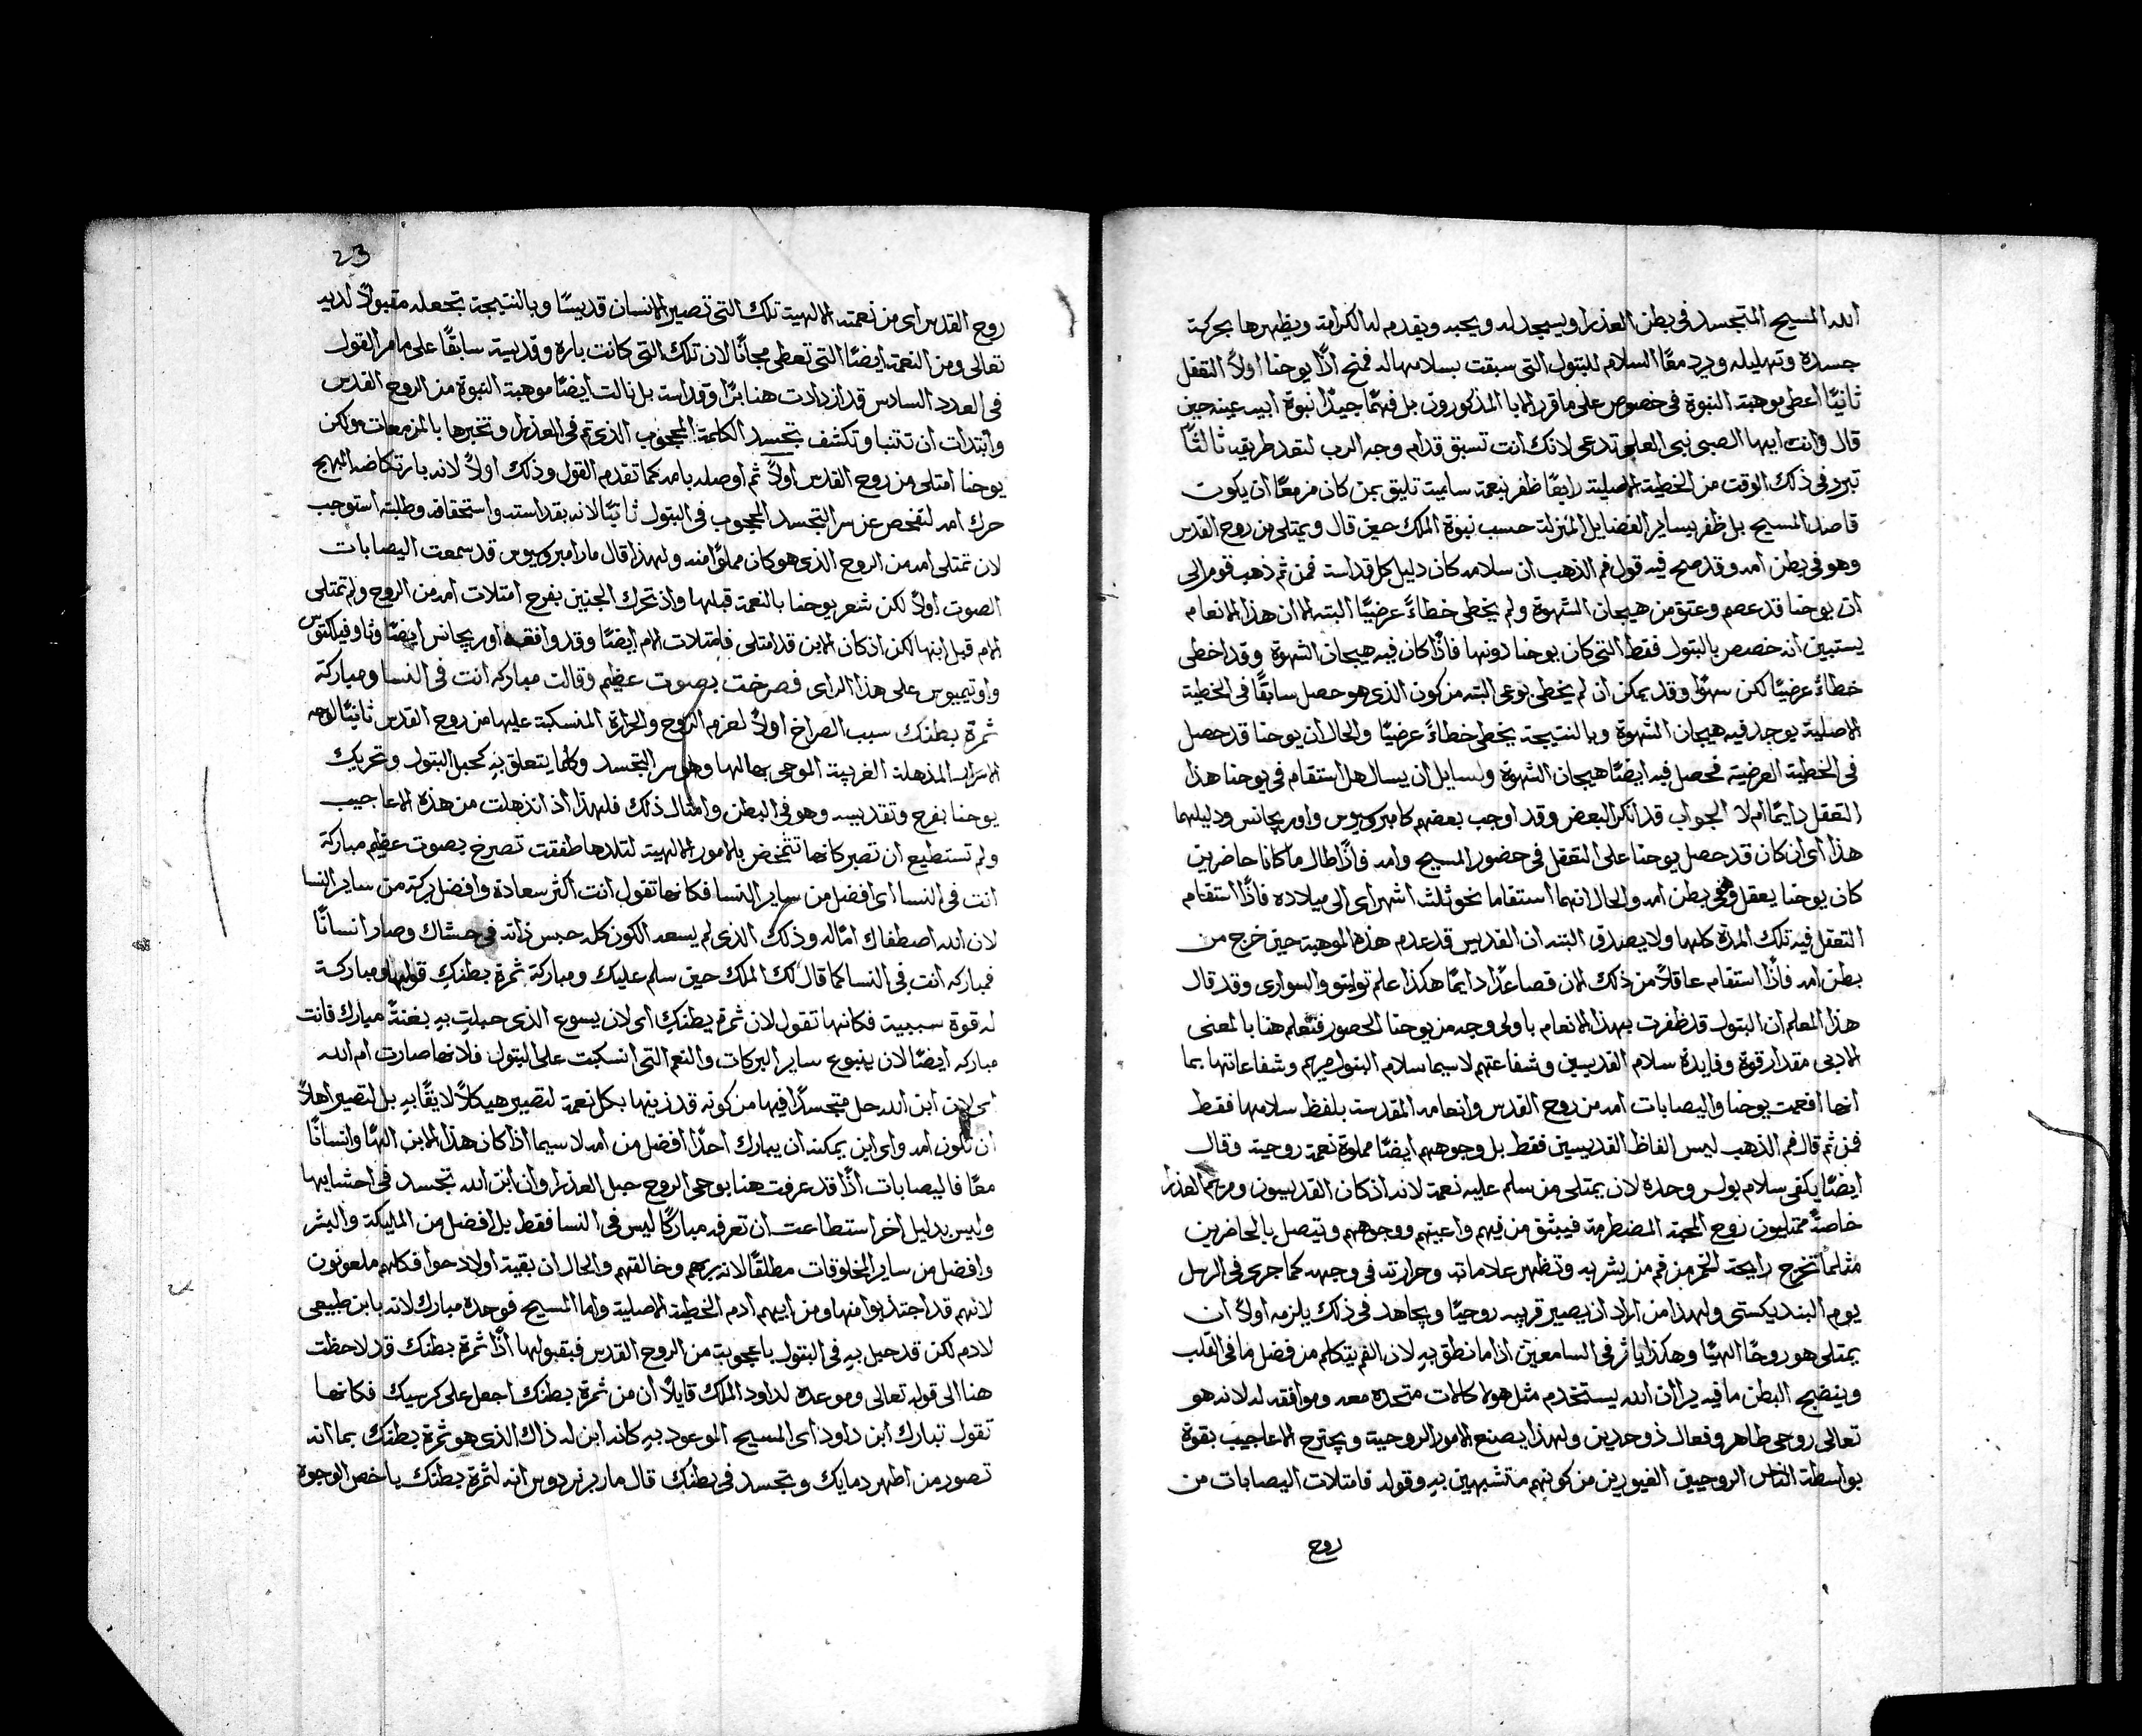 الله المسيح المتجسد في بطن العذرا ويسجد له ويحبه ويقدم له الكرامة ويظهرها بحركة
جسده وتهليله ويرد معًا السلام للبتول التى سبقت بسلامها له فمنح اذًا يوحنا اولاً التعقل
ثانيًا اعطى موهبة النبوة في خصوص على ما قرر الابا المذكورون بل فهمًا جيدًا نبوة ابيه عينه حين
قال وانت ايها الصبى نبى العلى تدعى لانك انت تسبق قدام وجه الرب لتعد طريقه ثالثًا
تبرر في ذلك الوقت من الخطية الاصلية رابعًا ظفر بنعمة سامية تليق بمن كان مزمعًا ان يكون
قاصد المسيح بل ظفر بساير الفضايل المنزلة حسب نبوة الملك حين قال ويمتلى من روح القدس
وهو في بطن امه وقد صح فيه قول فم الذهب ان سلامه كان دليل كل قداسة فمن ثم ذهب قوم الى
ان يوحنا قد عصم وعتق من هيجان الشهوة ولم يخطى خطاءً عرضيًا البته الا ان هذا الانعام
يستبين انه خصص بالبتول فقط التى كان يوحنا دونها فاذًا كان فيه هيجان الشهوة وقد اخطى
خطاءً عرضيًا لكن سهوًا وقد يمكن ان لم يخطى بوعى البته من كون الذى هو حصل سابقًا في الخطية
الاصلية يوجد فيه هيجان الشهوة وبالنتيجة يخطى خطاءً عرضيًا والحال ان يوحنا قد حصل
في الخطية العرضية فحصل فيه ايضًا هيجان الشهوة ولسايل ان يسال هل استقام في يوحنا هذا
التعقل دايمًا ام لا الجواب قد انكر البعض وقد اوجب بعضهم كامبروسيوس واوريجانس ودليلهما
هذا اى ان كان قد حصل يوحنا على التعقل في حضور المسيح وامه فاذًا طال ما كانا حاضرين
كان يوحنا يعقل وهو في بطن امه والحال انهما استقاما نحو ثلثة اشهر اى الى ميلاده فاذًا استقام
التعقل فيه تلك المدة كلها ولا يصدق البته ان القديس قد عدم هذه الموهبة حين خرج من
بطن امه فاذًا استقام عاقلاً من ذلك الان فصاعدًا دايمًا هكذا علم توليتو والسوارى وقد قال
هذا المعلم ان البتول قد ظفرت بهذا الانعام باولى وجه من يوحنا الحصور فتعلم هنا بالمعنى
الادبى مقدار قوة وفايدة سلام القديسين وشفاعتهم لا سيما سلام البتول مريم وشفاعاتها بما
انها افعمت يوحنا واليصابات امه من روح القدس وانعامه المقدسة بلفظ سلامها فقط
فمن ثم قال فم الذهب ليس الفاظ القديسين فقط بل وجوههم ايضًا مملوة نعمة روحية وقال
ايضًا يكفى سلام بولس وحده لان يمتلى من سلم عليه نعمة لانه اذ كان القديسون ومريم العذرا
خاصةً ممتليون روح المحبة المضطرمة فينبثق من فيهم واعينهم ووجوههم ويتصل بالحاضرين
مثلما تخرج رايحة الخمر من فم من يشربه وتظهر علاماته وحرارته في وجهه كما جرى في الرسل
يوم البنديكستى ولهذا من اراد ان يصير قريبه روحيًا ويجاهد في ذلك يلزمه اولاً ان
يمتلى هو روحًا الهيًا وهكذا ياثر في السامعين اذا ما نطق بهِ لان الفم يتكلم من فضل ما في القلب
وينضح البطن ما فيه ير ان الله يستخدم مثل هولا كالات متحدة معه وموافقه له لانه هو
تعالى روحى طاهر وفعال ذو حدين ولهذا يصنع الامور الروحية ويجترح الاعاجيب بقوة
بواسطة الناس الروحيين الغيورين من كونهم متشبهين بهِ وقوله فامتلات اليصابات من
روح
23
روح القدس اى من نعمته الالهية تلك التى تصير الانسان قديسًا وبالنتيجة تجعله مقبولاً لديه
تعالى ومن النعمة ايضًا التى تعطى مجانًا لان تلك التى كانت باره وقديسة سابقًا على ما مر القول
في العدد السادس قد ازدادت هنا برًا وقداسة بل نالت ايضًا موهبة النبوة من الروح القدس
وابتدات ان تتنبا وتكشف بتجسد الكلمة المحجوب الذى تم في العذرا وتخبرها بالمزمعات ولكن
يوحنا امتلى من روح القدس اولاً ثم اوصله بامه كما تقدم القول وذلك اولاً لانه بارتكاضه البهج
حرك امه لتفحص عن سر التجسد المحجوب في البتول ثانيًا لانه بقداسته واستحقاقه وطلبته استوجب
لان تمتلى امه من الروح الذى هو كان مملوًا منه ولهذا قال مار امبروسيوس قد سمعت اليصابات
الصوت اولاً لكن شعر يوحنا بالنعمة قبلها واذ تحرك الجنين بفرح امتلات امه من الروح ولم تمتلى
الام قبل ابنها لكن اذ كان الابن قد امتلى فامتلات الام ايضًا وقد وافقه اوريجانس ايضًا وثاوفيلكتوس
واوتيميوس على هذا الراى فصرخت بصوت عظيم وقالت مباركه انت في النسا ومباركة
ثمرة بطنك سبب الصراخ اولاً لعزم الروح والحرارة المنسكبة عليها من روح القدس ثانيًا لوجه
الاسرار المذهلة الغريبة الموحى بها لها وهو سر التجسد وكلما يتعلق بهِ كحبل البتول وتحريك
يوحنا بفرح وتقديسه وهو في البطن وامثال ذلك فلهذا اذ انذهلت من هذه الاعاجيب
ولم تستطيع ان تصبر كانها تتمخض بالامور الالهية لتلدها طفقت تصرخ بصوت عظيم مباركة
انت في النسا اى افضل من ساير النسا فكانها تقول انت اكثر سعادة وافضل بركة من ساير النسا
لان الله اصطفاك امًا له وذلك الذى لم يسعه الكون كله حبس ذاته في حشاك وصار انسانًا
فمباركه انت في النسا كما قال لك الملك حين سلم عليك ومباركة ثمرة بطنكِ قولها ومباركة
له قوة سببية فكانها تقول لان ثمرة بطنكِ اى لان يسوع الذى حبلتِ بهِ بغتةً مبارك فانت
مباركه ايضًا لان ينبوع ساير البركات والنعم التى انسكبت على البتول فلانها صارت ام الله
اى لان ابن الله حل متجسدًا فيها من كونه قد زينها بكل نعمة لتصير هيكلاً لايقًا بهِ بل لتصير اهلاً
ان تكون امه واى ابن يمكنه ان يبارك احدًا افضل من امه لا سيما اذا كان هذا الابن الهًا وانسانًا
معًا فاليصابات اذًا قد عرفت هنا بوحى الروح حبل العذرا وان ابن الله تجسد في احشايها
وليس بدليل اخر استطاعت ان تعرفه مباركًا ليس في النسا فقط بل افضل من المليكة والبشر
وافضل من ساير المخلوقات مطلقًا لانه ربهم وخالقهم والحال ان بقية اولاد حوا فكلهم ملعونون
لانهم قد اجتذبوا منها ومن ابيهم ادم الخطية الاصلية واما المسيح فوحده مبارك لانه بابن طبيعى
لادم لكن قد حبل بهِ في البتول باعجوبة من الروح القدس فبقبولها اذًا ثمرة بطنك قد لاحظت
هنا الى قوله تعالى وموعده لداود الملك قايلاً ان من ثمرة بطنك اجعل على كرسيك فكانها
تقول تبارك ابن داود اى المسيح الموعود بهِ كانه ابن له ذاك الذى هو ثمرة بطنك بما انه
تصور من اطهر دمايك وتجسد في بطنك قال مار برنردوس انه لثمرة بطنك باخص الوجوه